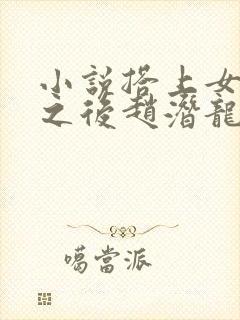 小說搭上女
之後趙潛龍
噶當派